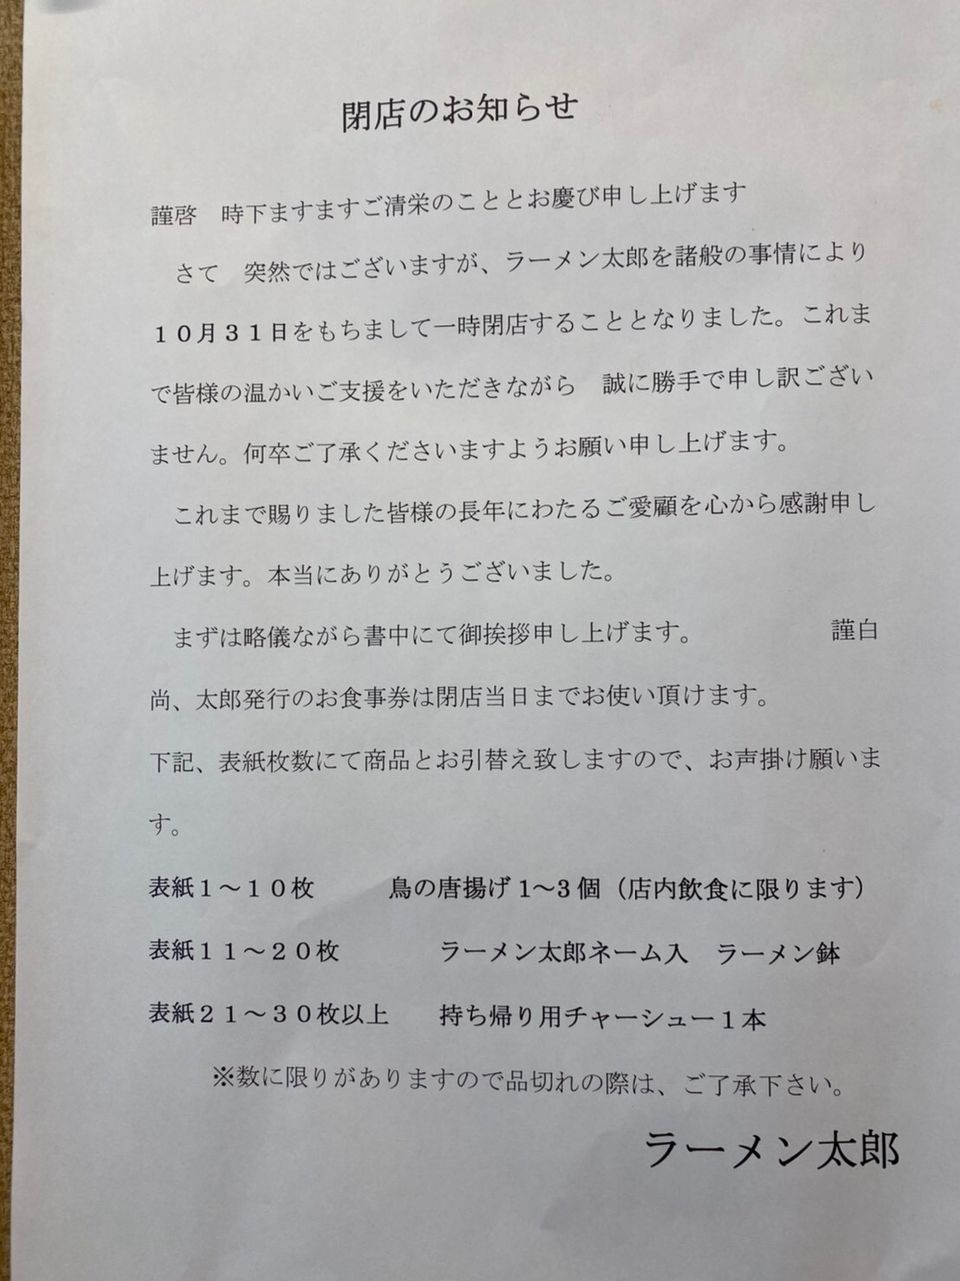 閉店のお知らせ
謹啓　時下ますますご清栄のこととお慶び申し上げます
さて　突然ではございますが、ラーメン太郎を諸般の事情により
１０月３１日をもちまして一時閉店することとなりました。これま
で皆様の温かいご支援をいただきながら　誠に勝手で申し訳ござい
ません。何卒ご了承くださいますようお願い申し上げます。
これまで賜りました皆様の長年にわたるご愛顧を心から感謝申し
上げます。本当にありがとうございました。
まずは略儀ながら書中にて御挨拶申し上げます。　　　　　　謹白
尚、太郎発行のお食事券は閉店当日までお使い頂けます。
下記、表紙枚数にて商品とお引替え致しますので、お声掛け願いま
す。
表紙１～１０枚　　　鳥の唐揚げ 1～3 個（店内飲食に限ります）
表紙１１～２０枚　　　　ラーメン太郎ネーム入　ラーメン鉢
表紙２１～３０枚以上　　持ち帰り用チャーシュー１本
※数に限りがありますので品切れの際は、ご了承下さい。
ラーメン太郎